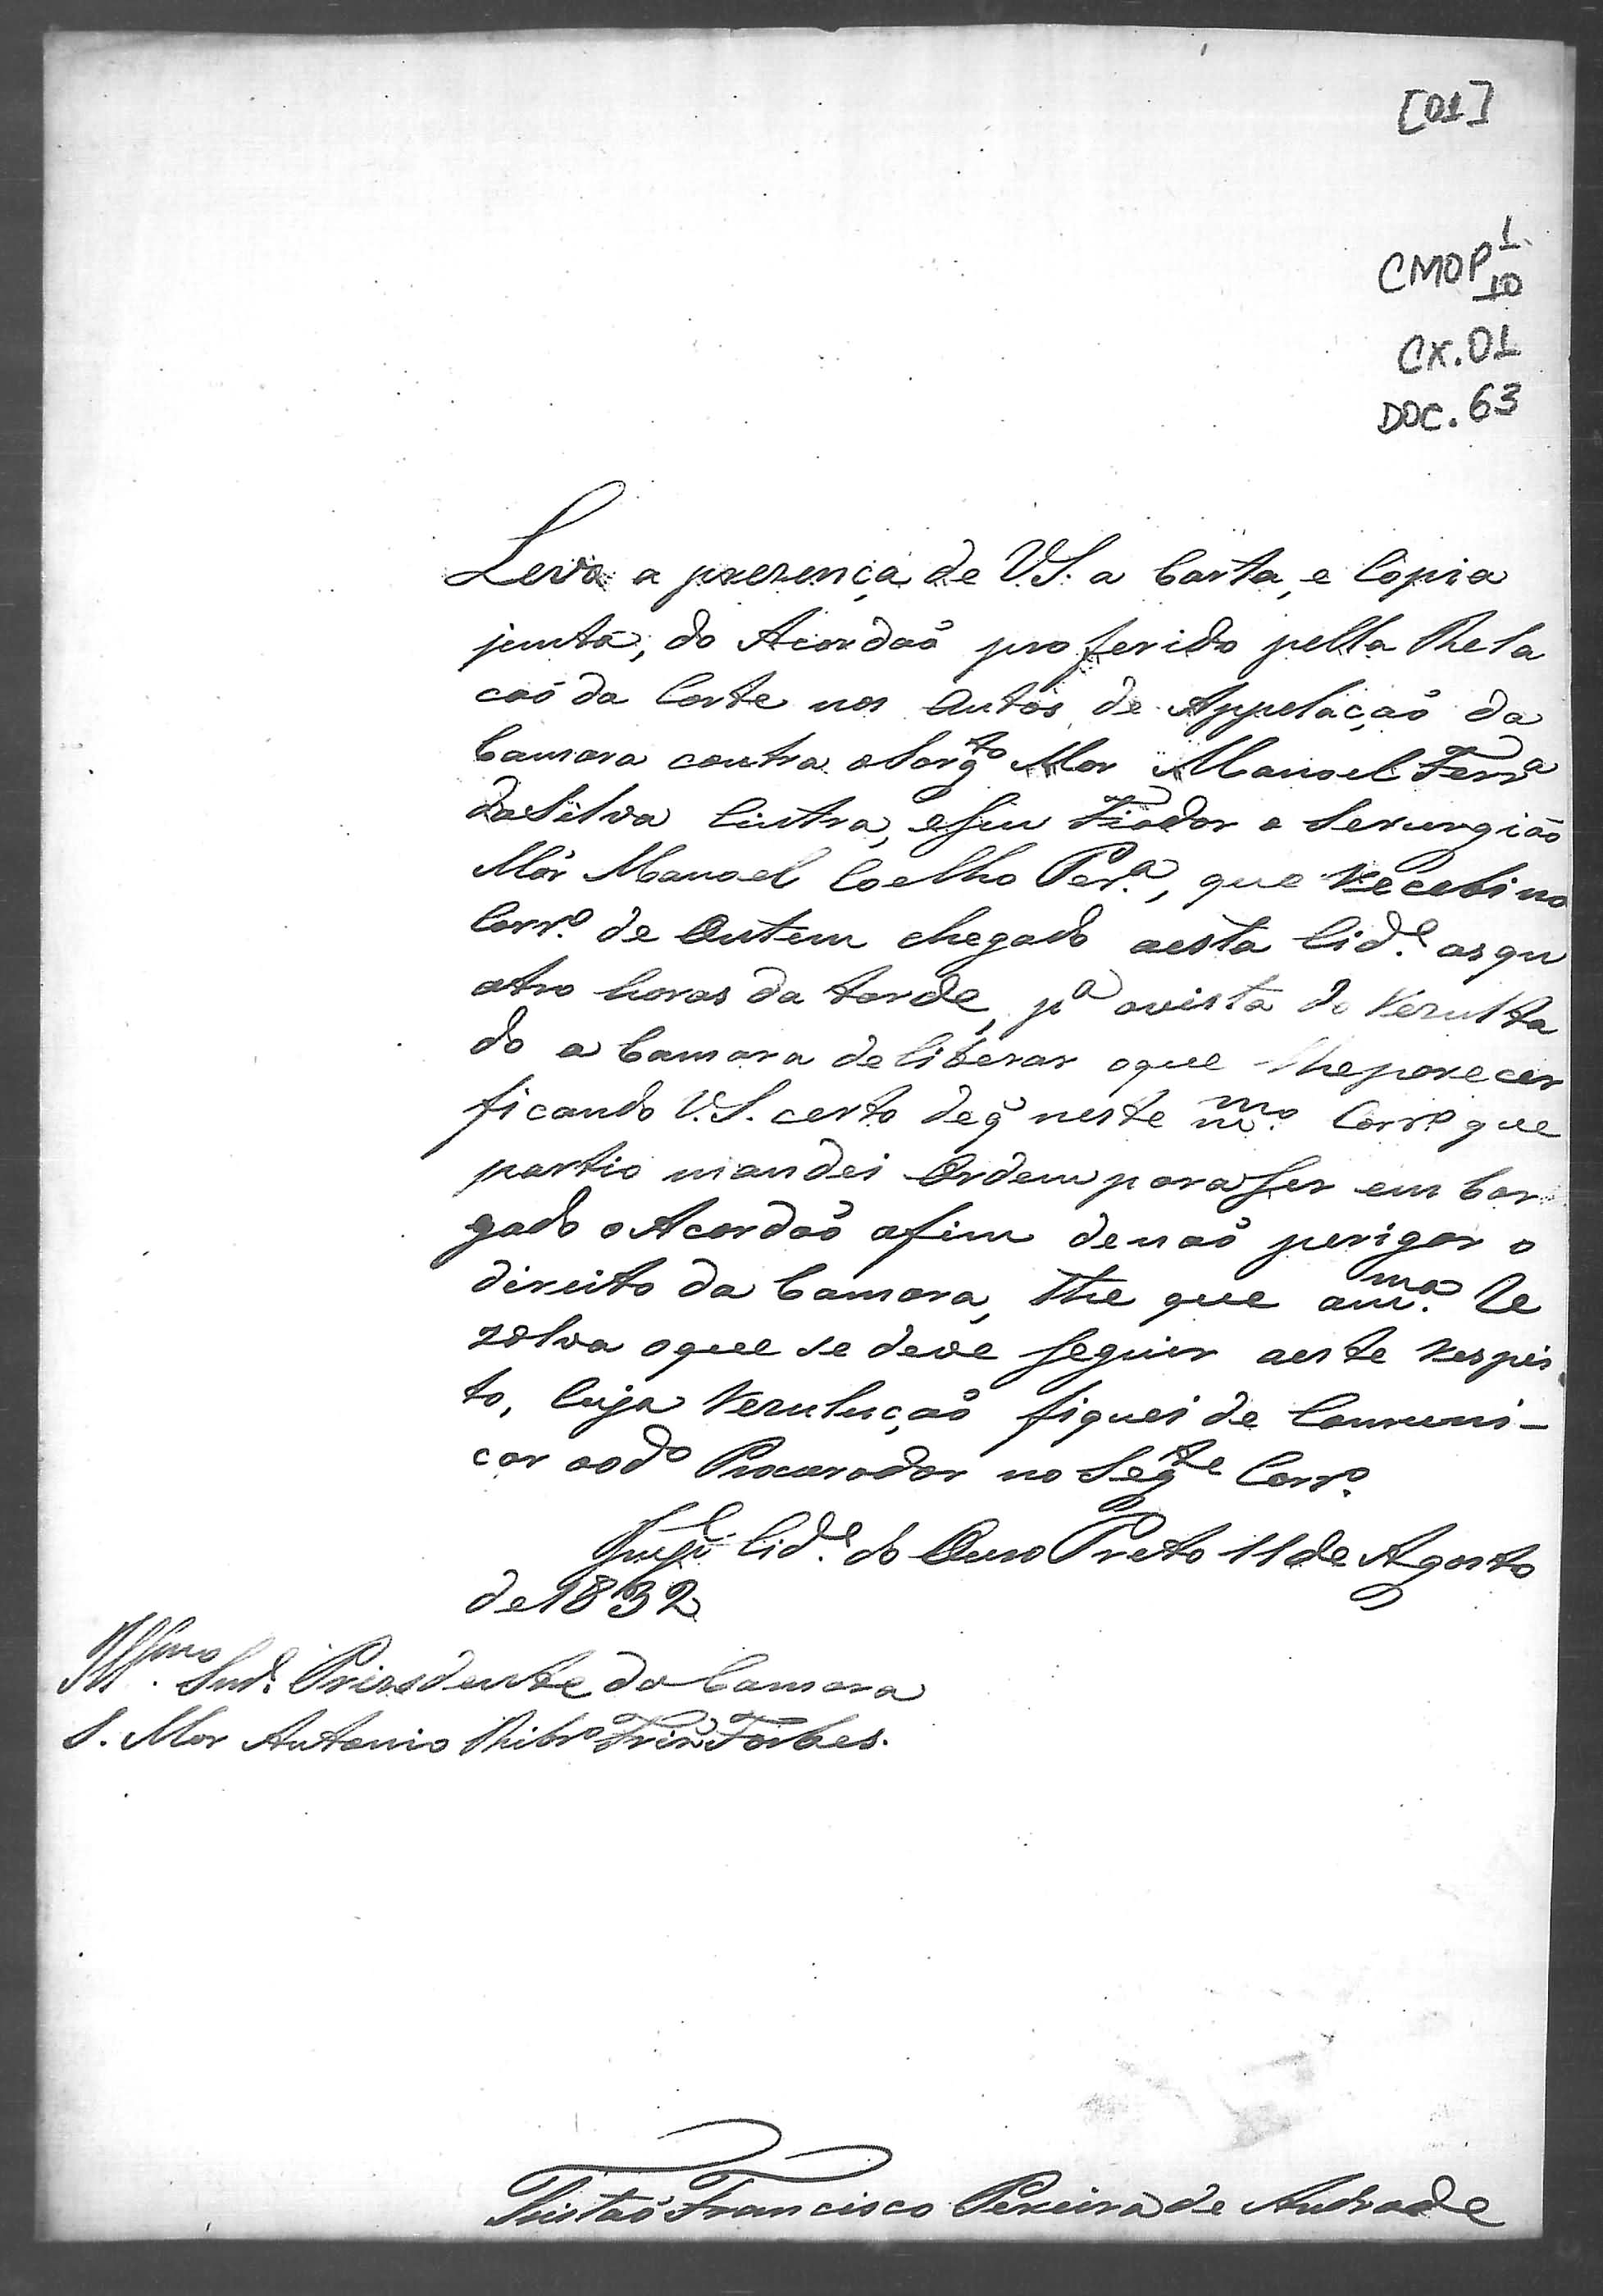 [01]
CMOP 1.
10
CX. 01
DOC. 63
Levo a prezença de V.S. a Carta, e Copia
junta, do Acordaõ proferido pella Rela
caõ da Corte nos Autos de Appelaçaõ da
Camara contra o Sargto Mor Manoel Ferra
da Silva Cintra, e seu Fiador o Serurgiaõ
Mór Manoel Coelho Per.a, que Recebi no
Corr.o de Ontem chegado aesta Cid.e as qu
atro horas da tarde, pa avista do Rezulta
do a Camara deliberar oque lheparecer
ficando V.S. certo deq̃ neste mmo. Corr.o que
partio mandei Ordem para ser embar
gado o Acordaõ afim denaõ perigar o
direito da Camara, the que amma. Re
zolva oque se deve seguir aeste respei
to, Cuja Rezuluçaõ fiquei de Comuni-
car aodo Procurador no Segte Corr.o
Cid.e do Ouro Preto 11 de Agosto
de 1832
Illmo. Snr. Prezidente da Camara
S. Mor Antonio Ribro Forbes.
Tristaõ Francisco Pereira de Andrade